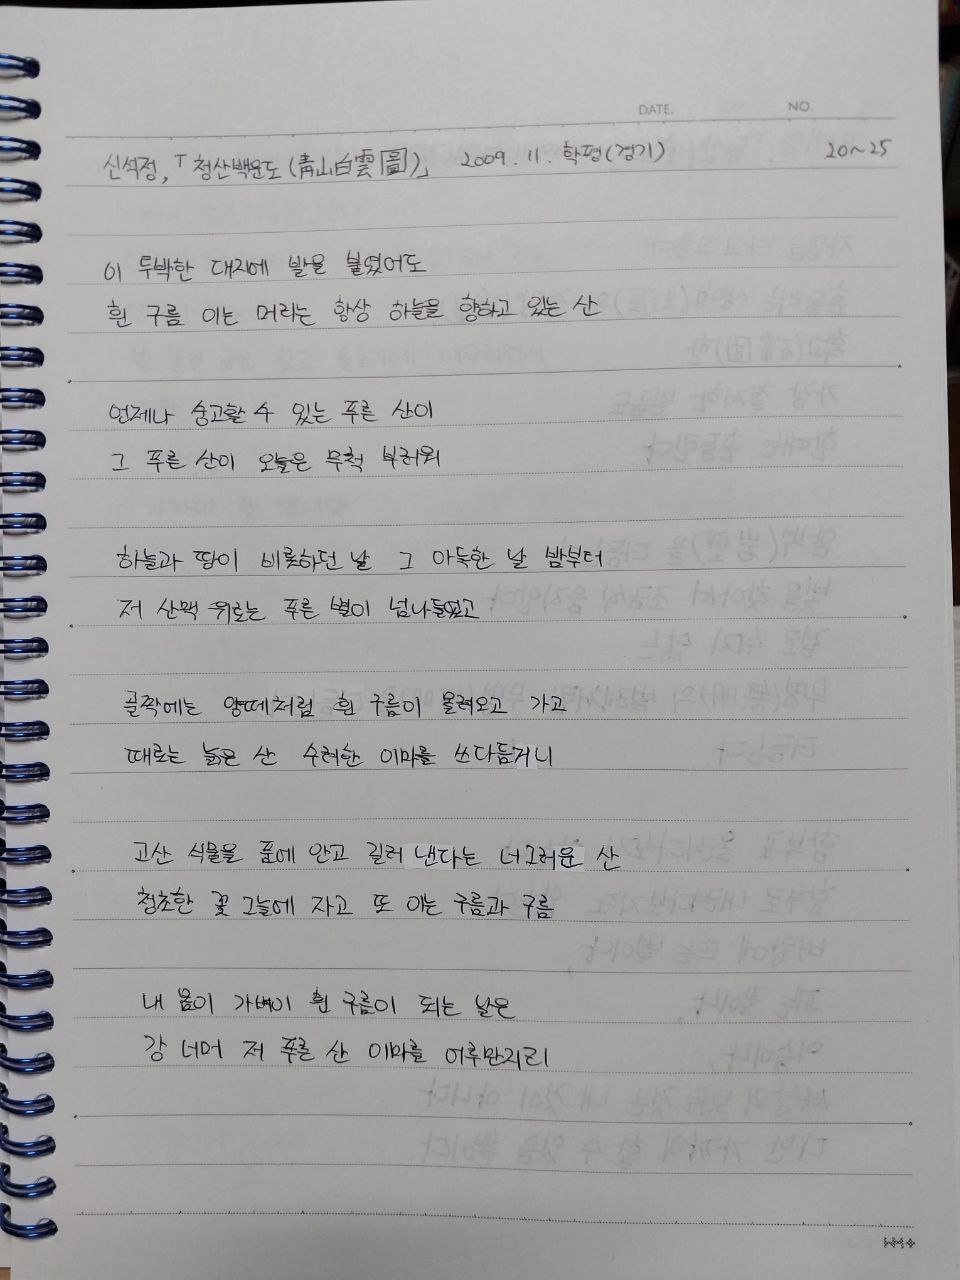 DATE. NO.
신석정, 「청산백운도(靑山白雲圖)」 2009. 11. 학평(경기) 20~25
이 투박한 대지에 발을 붙였어도
흰 구름 이는 머리는 항상 하늘을 향하고 있는 산
언제나 숭고할 수 있는 푸른 산이
그 푸른 산이 오늘은 무척 부러워
하늘과 땅이 비롯하던 날 그 아득한 날 밤부터
저 산맥 위로는 푸른 별이 넘나들었고
골짝에는 양떼처럼 흰 구름이 몰려오고 가고
때로는 늙은 산 수려한 이마를 쓰다듬거니
고산 식물을 품에 안고 길러 낸다는 너그러운 산
청초한 꽃 그늘에 자고 또 이는 구름과 구름
내 몸이 가벼이 흰 구름이 되는 날은
강 너머 저 푸른 산 이마를 어루만지리